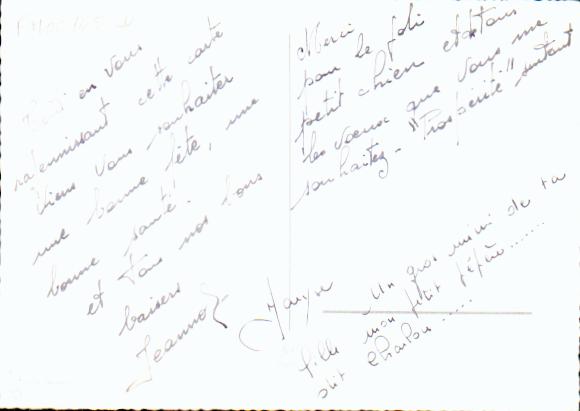 en vous
rajeunissant cette carte
viens vous souhaiter
une bonne fête, une
bonne santé.
et tous nos bons
baisers
Jeannot
Maryse
Merci
pour le joli
petit chien et tous
les vœux que vous me
souhaitez - "Prospérité" surtout
Un gros mimi de ta
fille mon petit pépère.......
dit Charlou.....